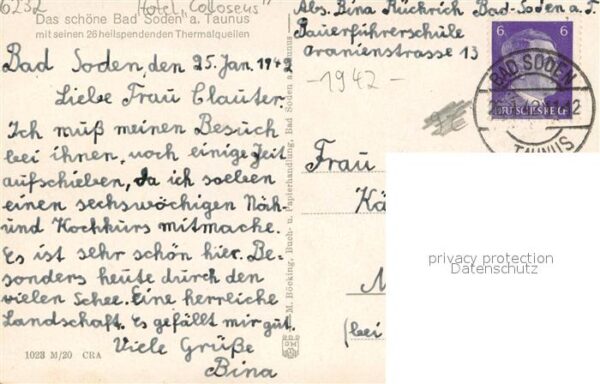 6232
Hotel "Colloseus"
Das schöne Bad Soden a. Taunus
mit seinen 26 heilspendenden Thermalquellen
Bad Soden, den 25. Jan. 1942
Liebe Frau Clauter.
Ich muß meinen Besuch
bei ihnen, noch einige Zeit
aufschieben, Da ich soeben
einen sechswöchigen Näh-
und Kochkurs mitmache.
Es ist sehr schön hier. Be-
sonders heute durch den
vielen Schee. Eine herrleiche
Landschaft. Es gefällt mir gut.
Viele Grüße
Bina
1023 M/20 CRA
M. Böcking, Buch- u. Papierhandlung, Bad Soden a. Taunus
Abs. Bina Rückrich Bad-Soden a. T.
Bauerführerschule
Oranienstrasse 13
-1942-
6 6
DEUTSCHES REICH
BAD SODEN
TAUNUS
Frau
Kä
M
(bei
privacy protection
Datenschutz